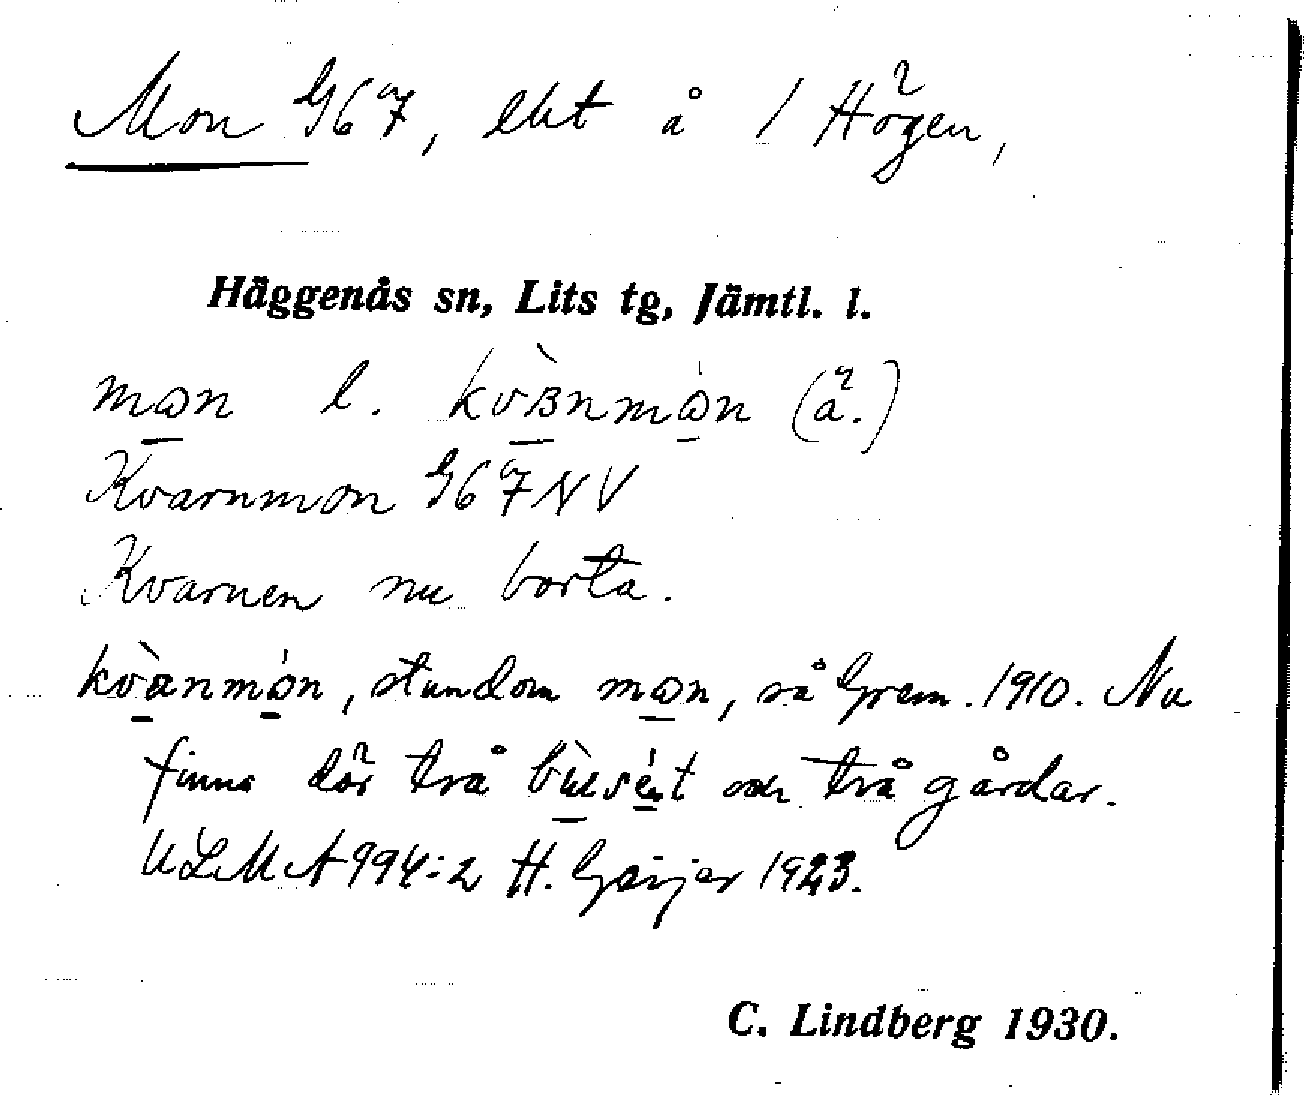 Mon G67, ebt å 1 Högen,
Häggenås sn, Lits tg, Jämtl. l.
mon l. kvànmòn (ä.)
Kvarnmon G67NV
Kvarnen nu borta.
kvànmòn, stundom mon, så Grem. 1910. Nu
finns där två bùsét och två gårdar.
ULMA 994:2 H. Geijer 1923.
C. Lindberg 1930.